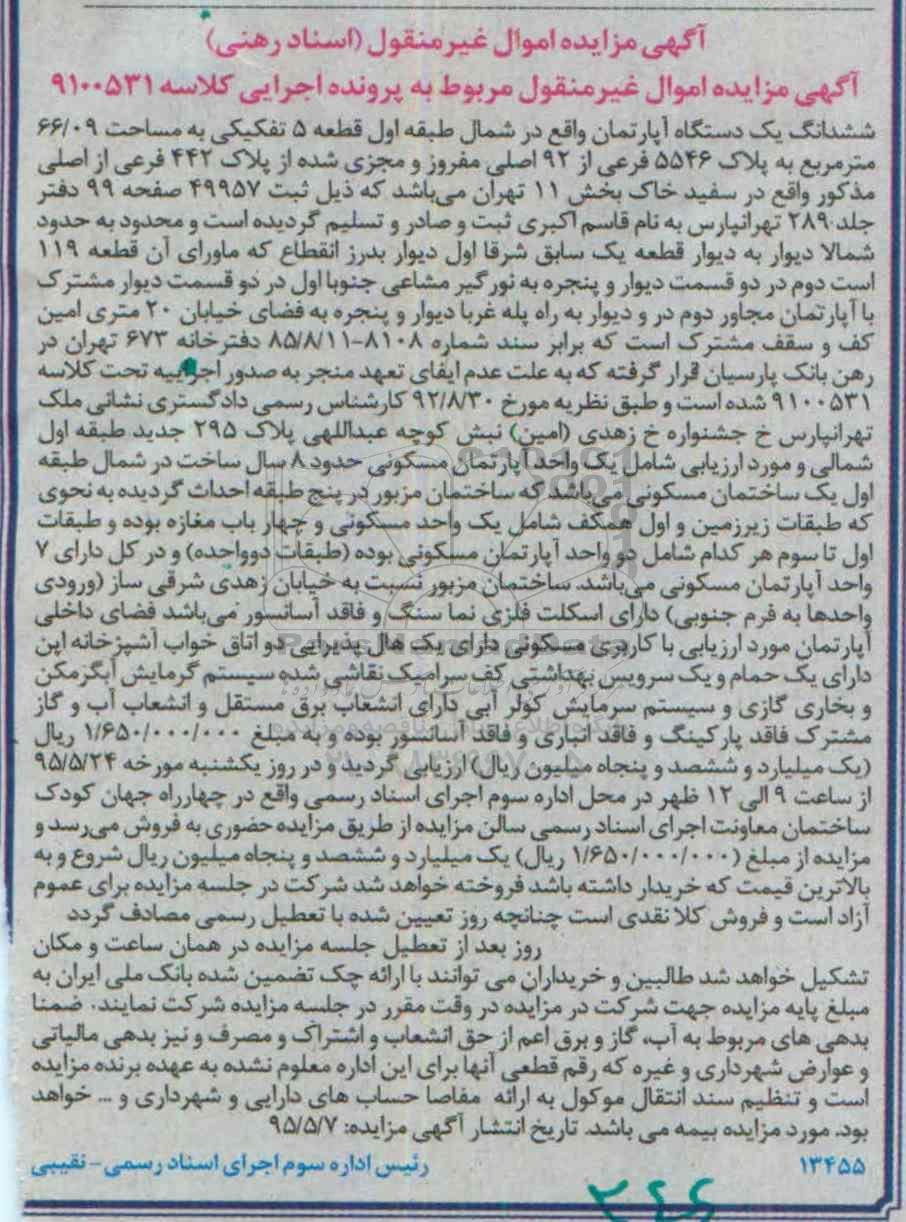 آگهی مزایده اموال غیرمنقول (اسناد رهنی)
آگهی مزایده اموال غیرمنقول مربوط به پرونده اجرایی کلاسه ۹۱۰۰۵۳۱
ششدانگ یک دستگاه آپارتمان واقع در شمال طبقه اول قطعه ۵ تفکیکی به مساحت ۶۶/۰۹
مترمربع به پلاک ۵۵۴۶ فرعی از ۹۲ اصلی مفروز و مجزی شده از پلاک ۴۴۲ فرعی از اصلی
مذکور واقع در سفید خاک بخش ۱۱ تهران می‌باشد که ذیل ثبت ۴۹۹۵۷ صفحه ۹۹ دفتر
جلد ۲۸۹ تهرانپارس به نام قاسم اکبری ثبت و صادر و تسلیم گردیده است و محدود به حدود
شمالا دیوار به دیوار قطعه یک سابق شرقا اول دیوار بدرز انقطاع که ماورای آن قطعه ۱۱۹
است دوم در دو قسمت دیوار و پنجره به نورگیر مشاعی جنوبا اول در دو قسمت دیوار مشترک
با آپارتمان مجاور دوم در و دیوار به راه پله غربا دیوار و پنجره به فضای خیابان ۲۰ متری امین
کف و سقف مشترک است که برابر سند شماره ۸۱۰۸-۸۵/۸/۱۱ دفترخانه ۶۷۳ تهران در
رهن بانک پارسیان قرار گرفته که به علت عدم ایفای تعهد منجر به صدور اجراییه تحت کلاسه
۹۱۰۰۵۳۱ شده است و طبق نظریه مورخ ۹۲/۸/۳۰ کارشناس رسمی دادگستری نشانی ملک
تهرانپارس خ جشنواره خ زهدی (امین) نبش کوچه عبداللهی پلاک ۲۹۵ جدید طبقه اول
شمالی و مورد ارزیابی شامل یک واحد آپارتمان مسکونی حدود ۸ سال ساخت در شمال طبقه
اول یک ساختمان مسکونی می‌باشد که ساختمان مزبور در پنج طبقه احداث گردیده به نحوی
که طبقات زیرزمین و اول همکف شامل یک واحد مسکونی و چهار باب مغازه بوده و طبقات
اول تا سوم هر کدام شامل دو واحد آپارتمان مسکونی بوده (طبقات دوواحده) و در کل دارای ۷
واحد آپارتمان مسکونی می‌باشد. ساختمان مزبور نسبت به خیابان زهدی شرقی ساز (ورودی
واحدها به فرم جنوبی) دارای اسکلت فلزی نما سنگ و فاقد آسانسور می‌باشد فضای داخلی
آپارتمان مورد ارزیابی با کاربری مسکونی دارای یک هال پذیرایی دو اتاق خواب آشپزخانه اپن
دارای یک حمام و یک سرویس بهداشتی کف سرامیک نقاشی شده سیستم گرمایش آبگرمکن
و بخاری گازی و سیستم سرمایش کولر آبی دارای انشعاب برق مستقل و انشعاب آب و گاز
مشترک فاقد پارکینگ و فاقد انباری و فاقد آسانسور بوده و به مبلغ ۱/۶۵۰/۰۰۰/۰۰۰ ریال
(یک میلیارد و ششصد و پنجاه میلیون ریال) ارزیابی گردید و در روز یکشنبه مورخه ۹۵/۵/۲۴
از ساعت ۹ الی ۱۲ ظهر در محل اداره سوم اجرای اسناد رسمی واقع در چهارراه جهان کودک
ساختمان معاونت اجرای اسناد رسمی سالن مزایده از طریق مزایده حضوری به فروش می‌رسد و
مزایده از مبلغ (۱/۶۵۰/۰۰۰/۰۰۰ ریال) یک میلیارد و ششصد و پنجاه میلیون ریال شروع و به
بالاترین قیمت که خریدار داشته باشد فروخته خواهد شد شرکت در جلسه مزایده برای عموم
آزاد است و فروش کلا نقدی است چنانچه روز تعیین شده با تعطیل رسمی مصادف گردد
روز بعد از تعطیل جلسه مزایده در همان ساعت و مکان
تشکیل خواهد شد طالبین و خریداران می توانند با ارائه چک تضمین شده بانک ملی ایران به
مبلغ پایه مزایده جهت شرکت در مزایده در وقت مقرر در جلسه مزایده شرکت نمایند. ضمنا
بدهی های مربوط به آب، گاز و برق اعم از حق انشعاب و اشتراک و مصرف و نیز بدهی مالیاتی
و عوارض شهرداری و غیره که رقم قطعی آنها برای این اداره معلوم نشده به عهده برنده مزایده
است و تنظیم سند انتقال موکول به ارائه مفاصا حساب های دارایی و شهرداری و ... خواهد
بود. مورد مزایده بیمه می باشد. تاریخ انتشار آگهی مزایده: ۹۵/۵/۷
۱۳۴۵۵ رئیس اداره سوم اجرای اسناد رسمی - نقیبی